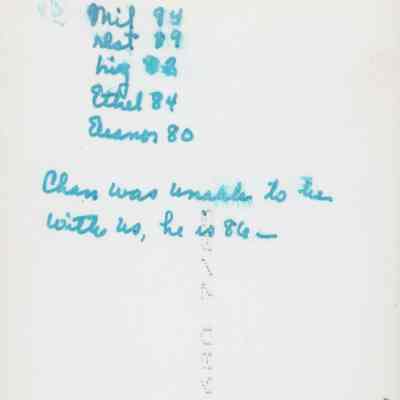 Mil 94
Nest 89
Liz 82
Ethel 84
Eleanor 80
Chas was unable to be
with us, he is 86 —